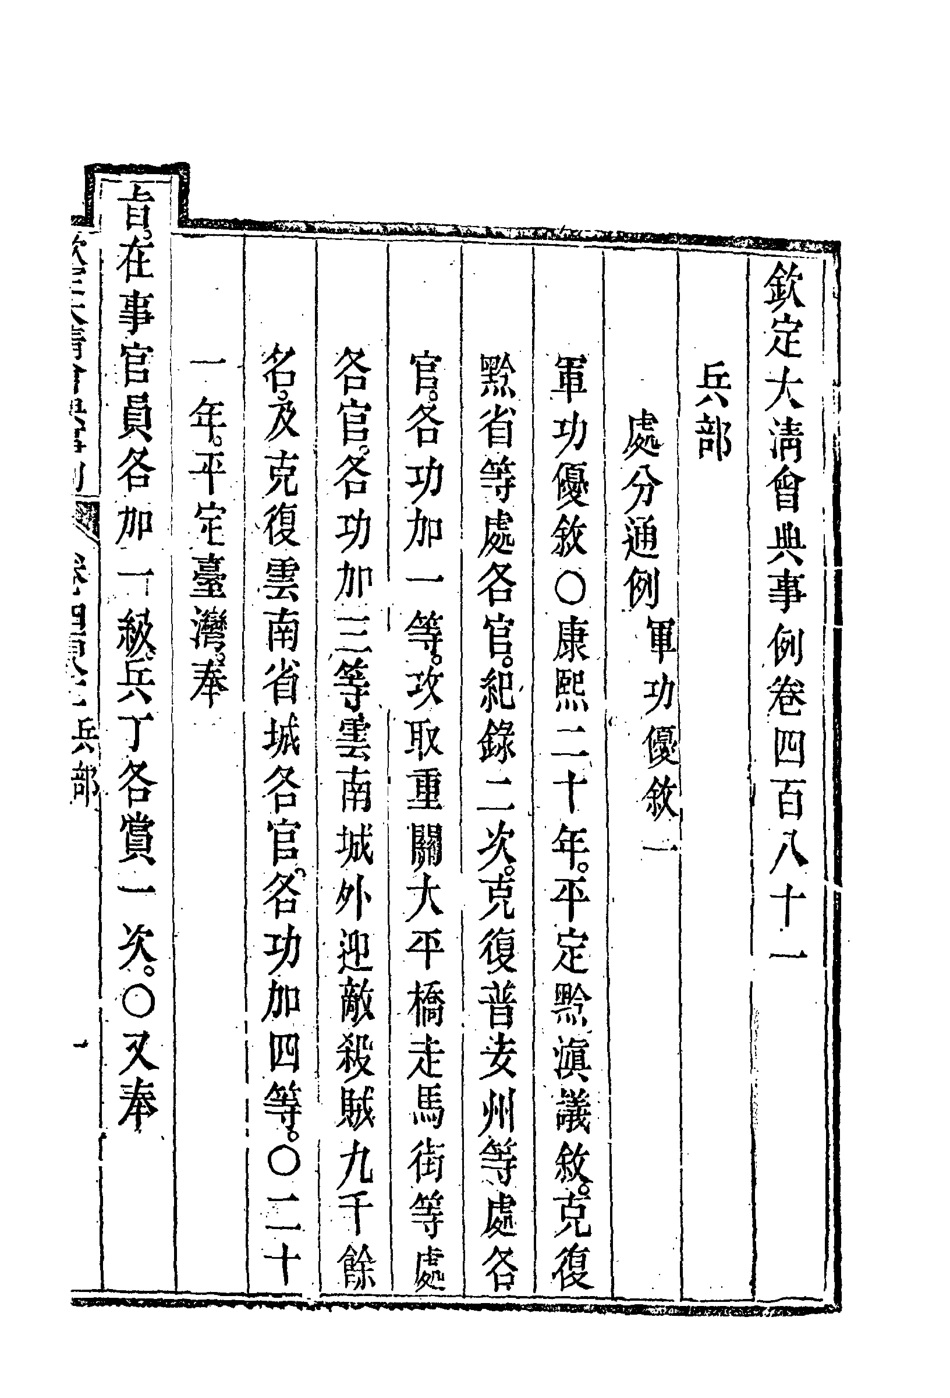 欽定大淸會典事例卷四百八十一
兵部
處分通例軍功優敘一
軍功優敘○康熙二十年。平定黔滇議敘。克復
黔省等處各官。紀錄二次。克復普安州等處各
官。各功加一等。攻取重關大平橋走馬街等處
各官。各功加三等雲南城外迎敵殺賊九千餘
名。及克復雲南省城各官。各功加四等。○二十
一年。平定臺灣。奉
旨。在事官員各加一級。兵丁各賞一次。○又奉
兵部